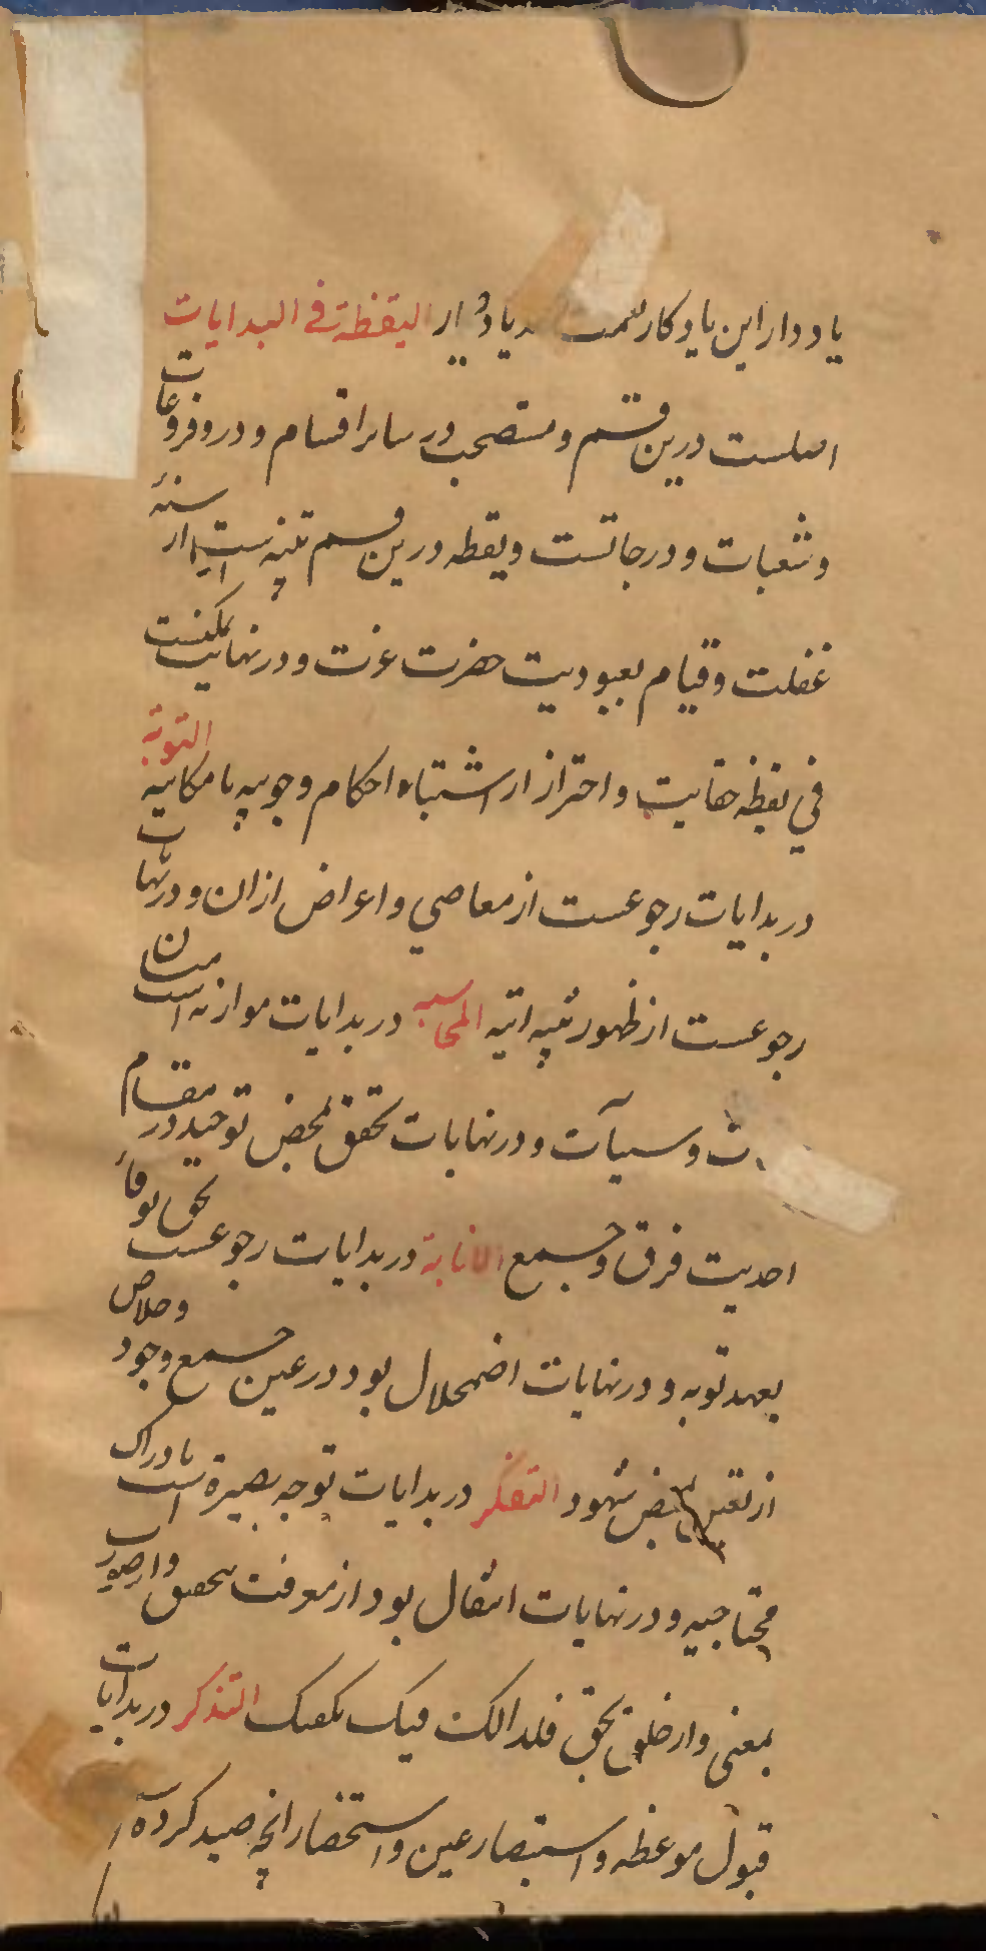 یاد دار این یادکار یاد دار الیقظة فی البدایات
اصلست درین قسم و مستصحب در سایر اقسام و در و فروعات
و شعبات و درجاتست و یقظه درین قسم تنبه است از سنه
غفلت و قیام بعبودیت حضرت عزت و در نهایت
فی یقظه حقانیت و احتراز از اشتباه احکام وجوبیه بامکانیه التوبة
در بدایات رجوعست از معاصی و اعراض از ان و در نهایات
رجوعست از ظهور انیه المحاسبه در بدایات موازنه است میان
ت و سیآت و در نهایات تحقق بمحض توحید در مقام
احدیت فرق و جمع الانابة در بدایات رجوعست بحق بوفاء
بعهد توبه و در نهایات اضمحلال بود در عین جمع وجود و خلاص
از شهود التفکر در بدایات توجه بصیرة است بادراک
محتاجیه و در نهایات انتقال بود از معرفت بتحقیق و از صورت
بمعنی و از خلق بحق فلذالک فیک یکفیک التذکر در بدایات
قبول موعظه و استبصار عین و استحضار انچه صید کرده